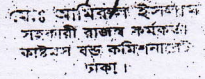 মোঃ আমিনুল ইসলাম
সহকারী রাজস্ব কর্মকর্তা
কাষ্টমস বন্ড কমিশনারেট
ঢাকা।